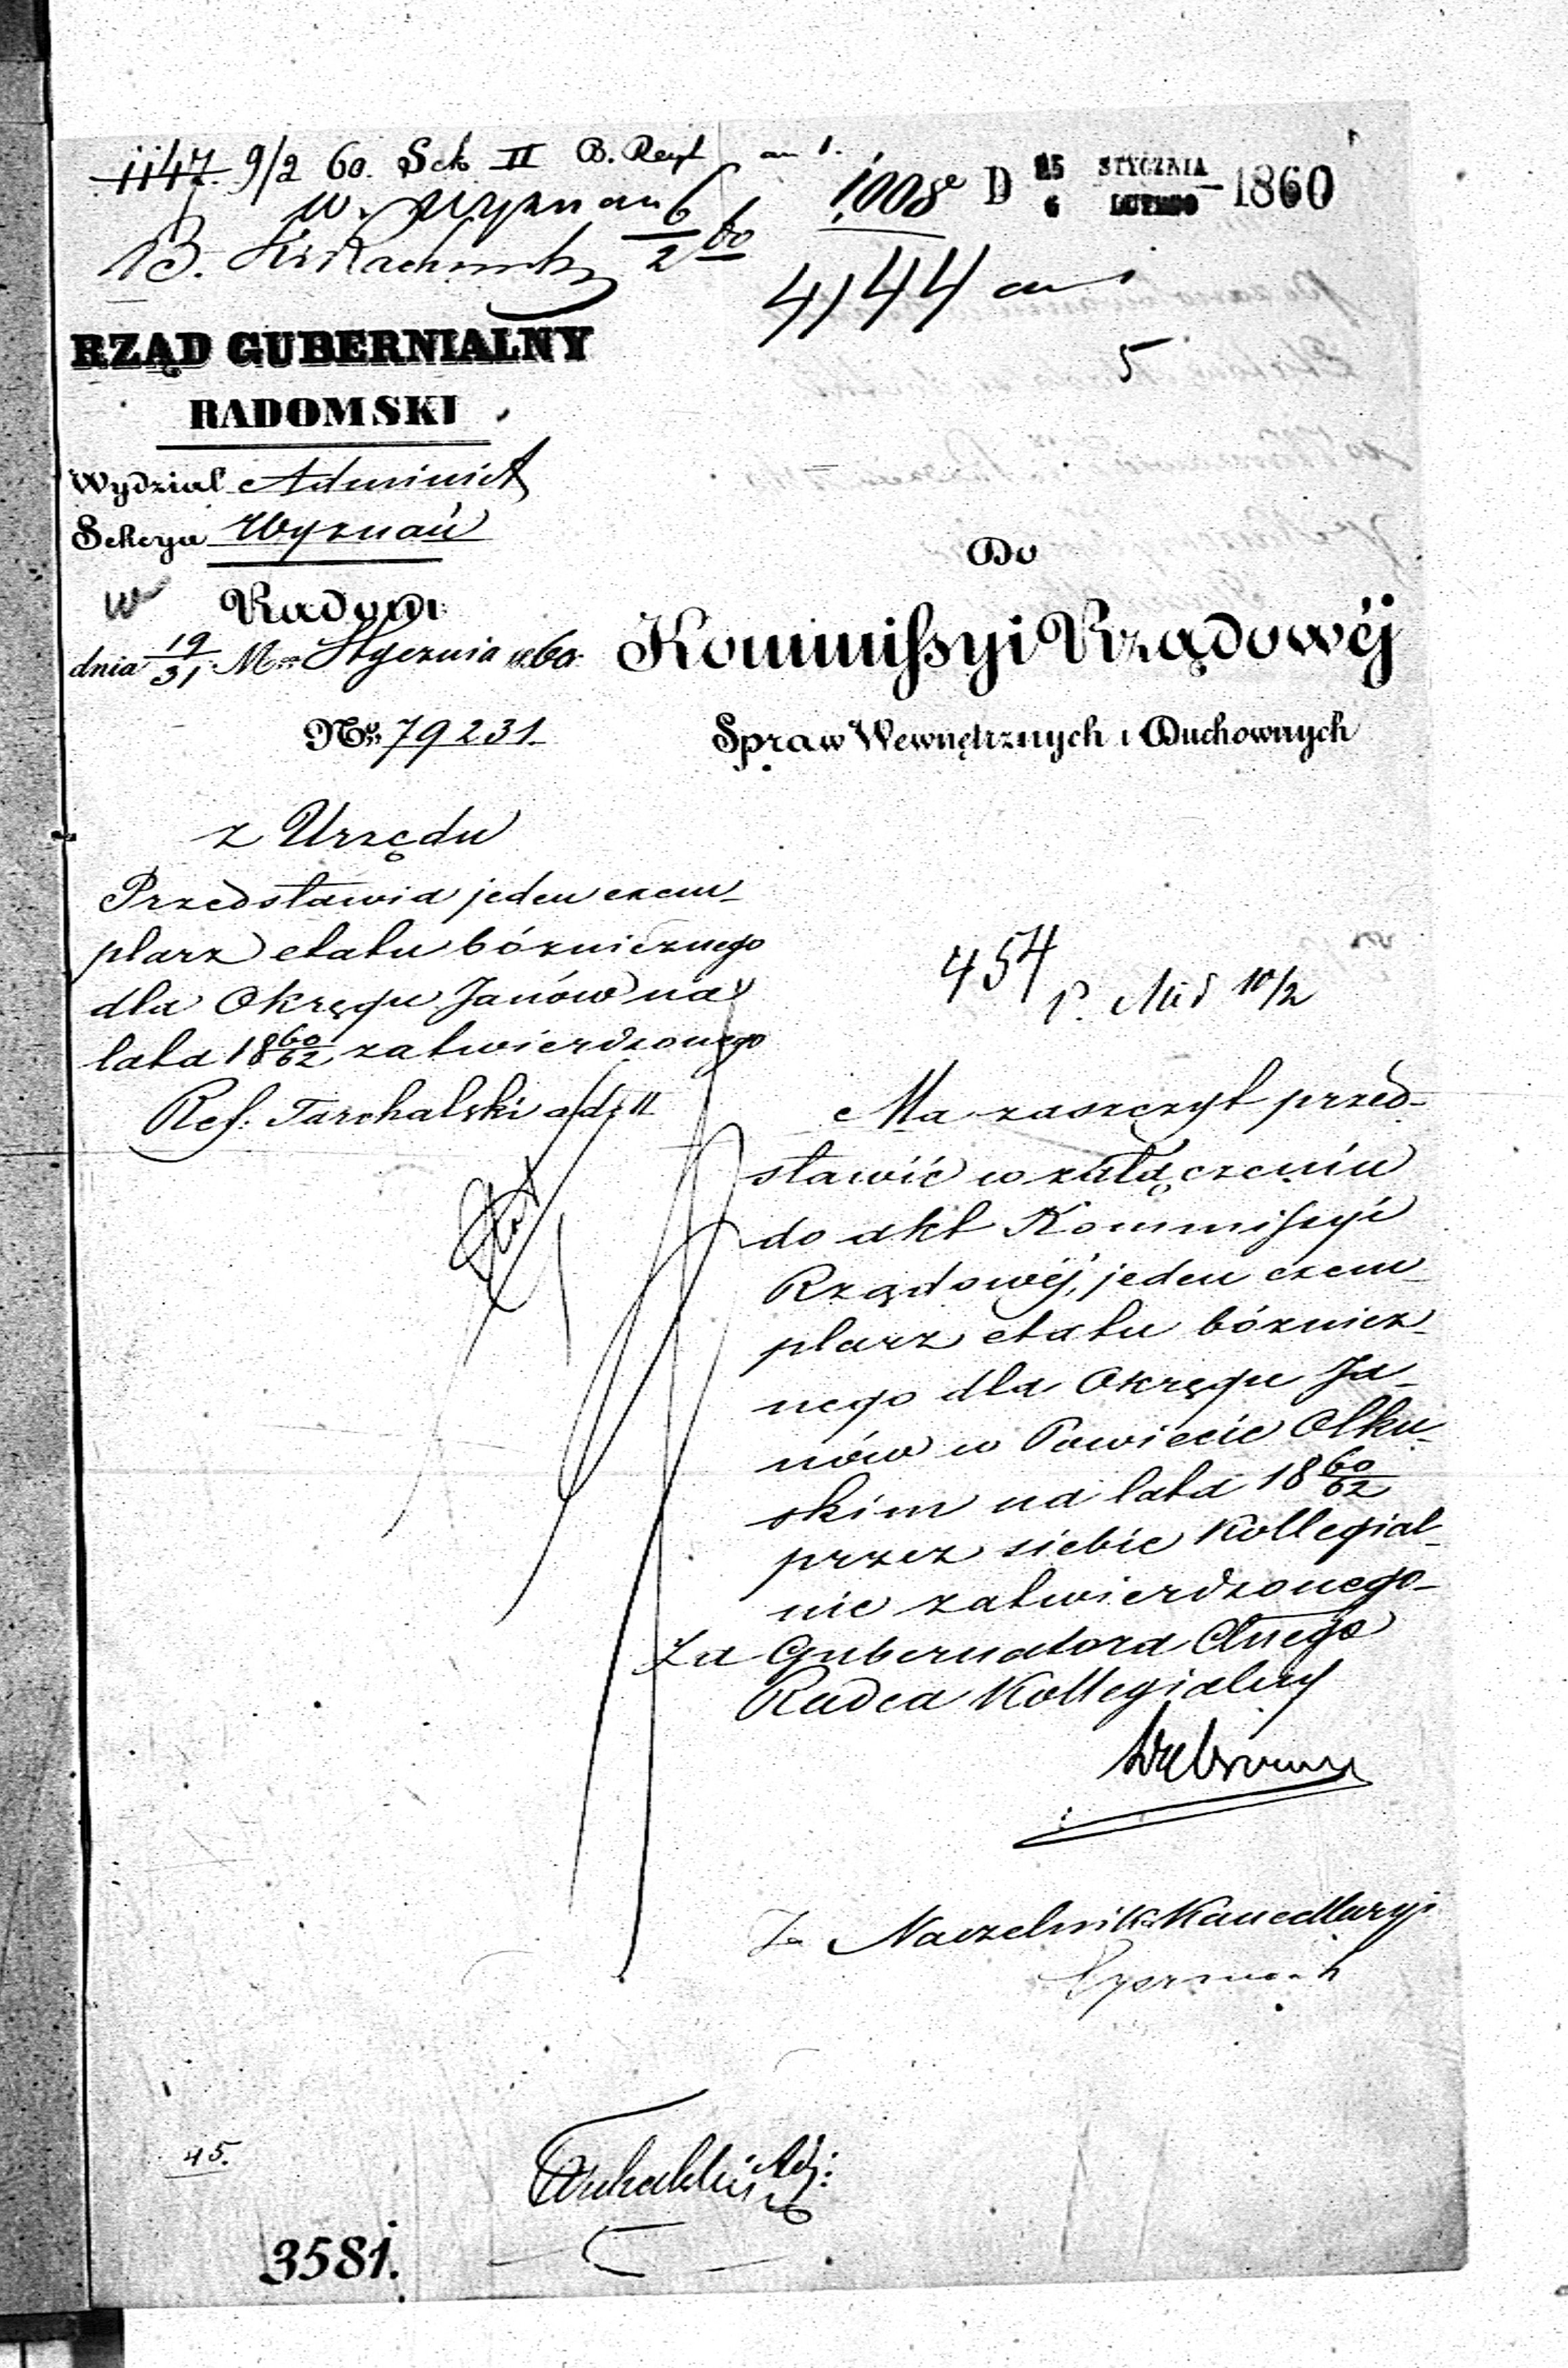 1147. 9/2 60. Sek II B. Rejt an 1.
w. wyznan 6/2 60
B.
1008 D 25/6 STYCZNIA/LUTEGO 1860
4144 an 1
5
RZĄD GUBERNIALNY
RADOMSKI
Wydział Administ
Sekcya Wyznań
w Radom
dnia 19/31 Mca Stycznia 1860.
No 79231.
Do
Kommissyi Rządowéj
Spraw Wewnętrznych i Duchownych
z Urzędu
Przedstawia jeden exem-
plarz etatu bóżnicznego
dla Okręgu Janów na
lata 18 60/62 zatwierdzonego
Ref: Tarchalski adj: II
454
10/2
Ma zaszczyt przed-
stawić w załączeniu
do akt Kommissyi
Rządowéj, jeden exem-
plarz etatu bóżnicz-
nego dla Okręgu Ja-
nów w Powiecie Olku-
skim na lata 18 60/62
przez siebie kollegial-
nie zatwierdzonego-
Za Gubernatora Cnego
Radca Kollegialny
Za Naczelnika Kancellaryi
Tarchalski Adj:
45.
3581.